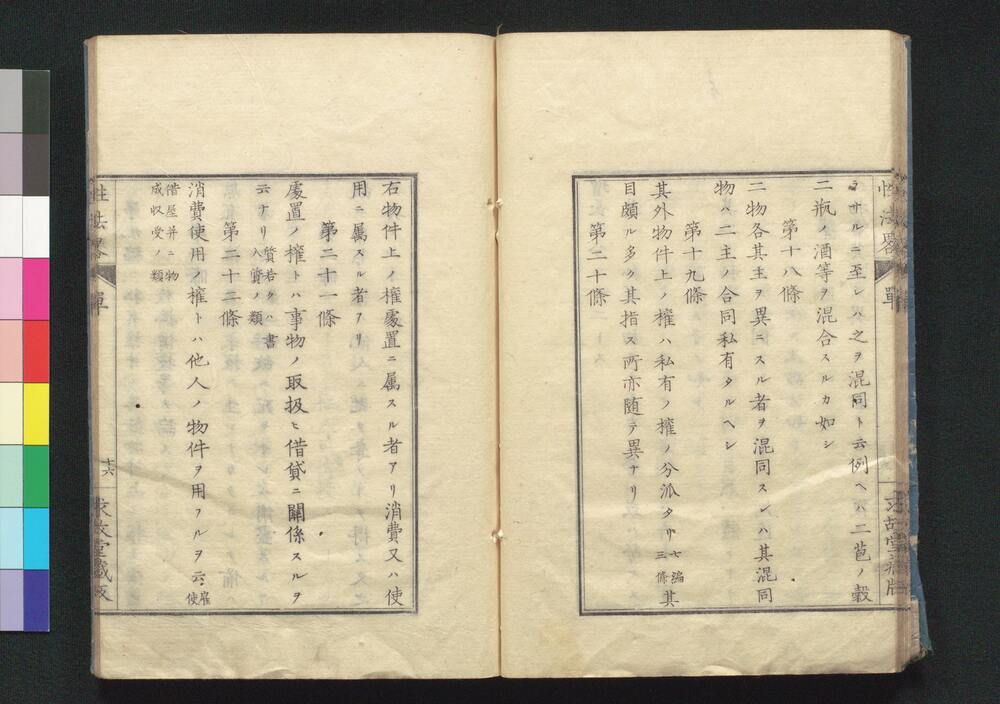 ヲナルニ至レハ之ヲ混同ト云例ヘハ二苞ノ穀
二瓶ノ酒等ヲ混合スルカ如シ
第十八條
二物各其主ヲ異ニスル者ヲ混同スレハ其混同
物ハ二主ノ合同私有タルヘシ
第十九條
其外物件上ノ權ハ私有ノ權ノ分派タリ七編三條其
目頗ル多ク其指ス所亦随テ異ナリ
第二十條
右物件上ノ權處置ニ属スル者アリ消費又ハ使
用ニ属スル者アリ
第二十一條
處置ノ權トハ事物ノ取扱ヒ借貸ニ關係スルヲ
云ナリ質若クハ書入質ノ類
第二十二條
消費使用ノ權トハ他人ノ物件ヲ用フルヲ云雇使
借屋并ニ物成収受ノ類
性法畧 單
十六